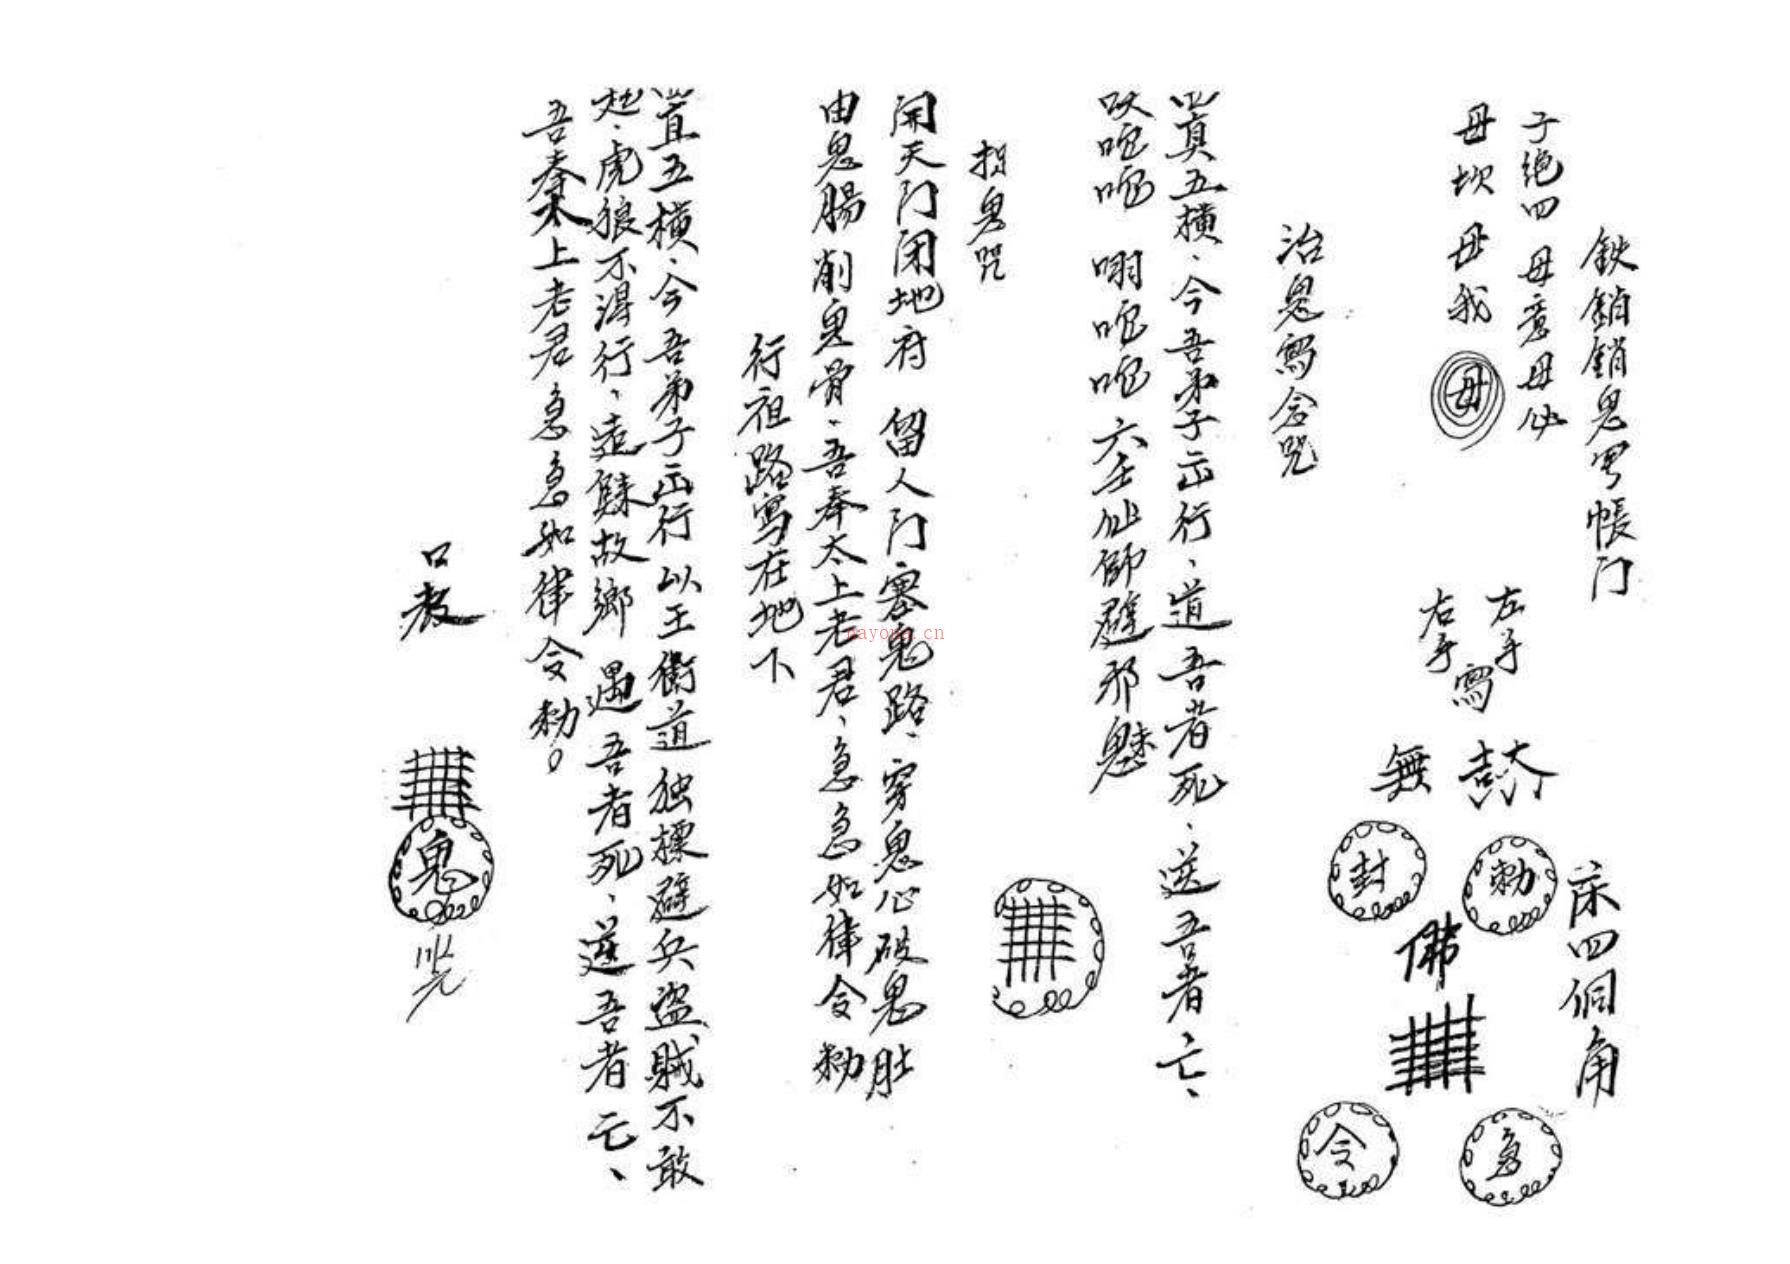 鉄銷銷鬼畀帳门
子绝四 毋意毋必
毋坎毋我 毋
左手
右手
寫
無
床四個角
勅
封
佛
急
令
治鬼寫念咒
四真五横、今吾弟子出行、道吾者死、送吾者亡、
呔咜咜 啪咜咜 六壬仙師避邪魅
拐鬼咒
開天门闭地府 留人门塞鬼路、穿鬼心破鬼肚
由鬼腸削鬼骨、吾奉太上老君、急急如律令勅
行祖路寫在地下
四直五横、今吾弟子出行以王衝道独標避兵盗、賊不敢
起、虎狼不淂行、遠歸故鄉 遇吾者死、逆吾者亡、
吾奉太上老君急急如律令勅。
口教
鬼
nayona.cn